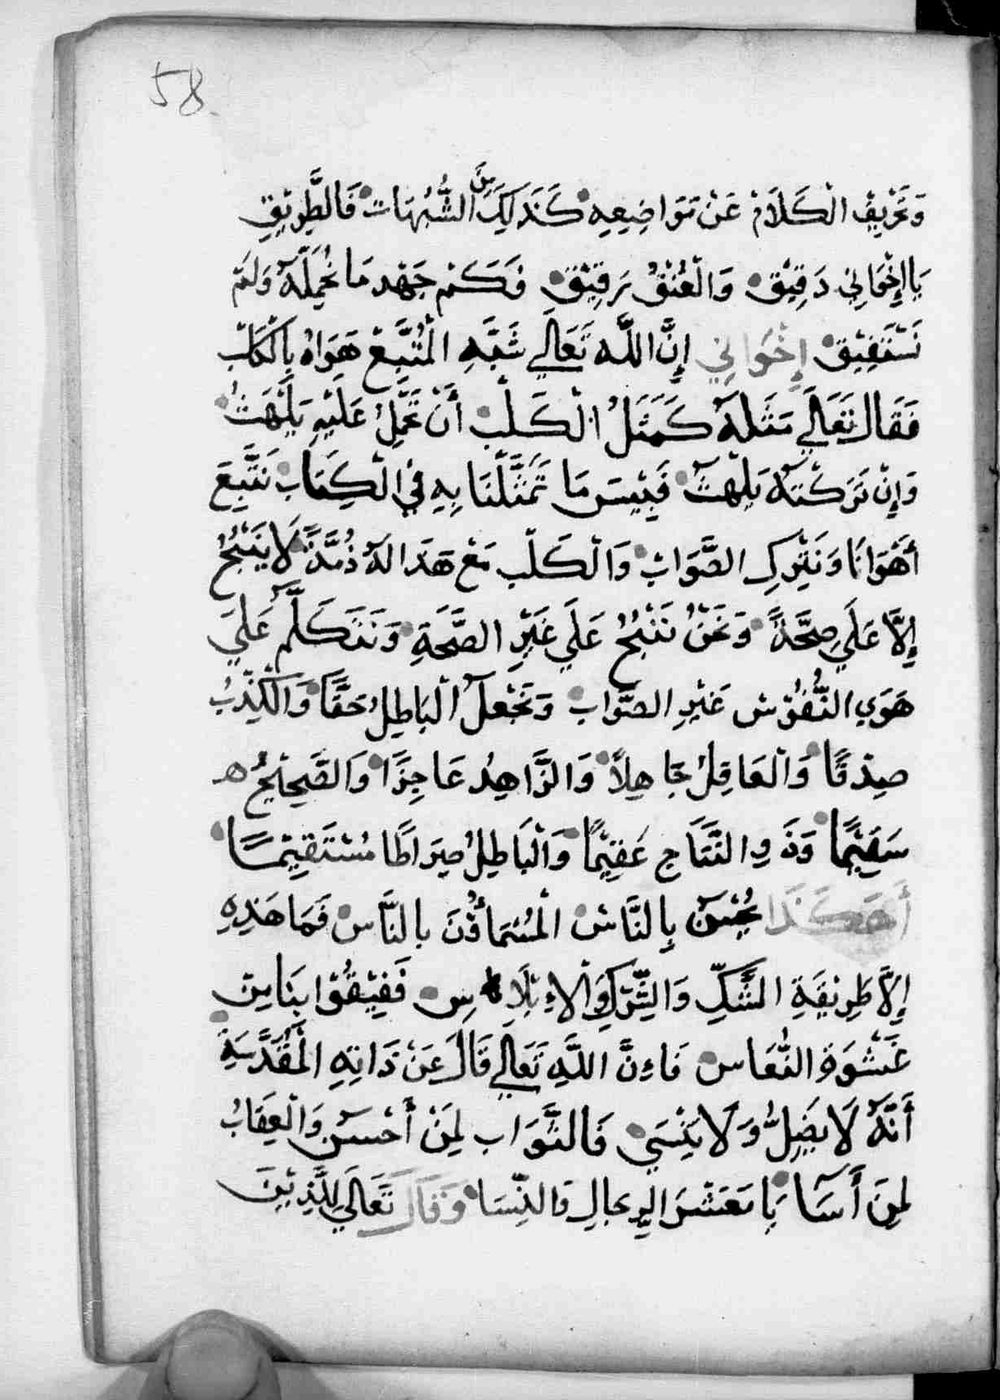 58
وَتَحْرِيْفِ الْكَلَامْ عَنْ مَوَاضِيعِهِ كَذَلِكَ مِنَ الشُّبُهَاتْ فَالطَّرِيْقِ
يَا إِخْوَانِي دَقِيْقْ وَالْعُنْقُ رَقِيْقْ وَكَمْ جَهْدِ مَا نُحَمِّلَهُ وَلَمْ
نَسْتَفِيْقْ إِخْوَانِي إِنَّ اللَّهَ تَعَالَي شَبَّهِ الْمُتَّبِعْ هَوَاهُ بِالْكَلْبْ
فَقَالَ تَعَالَي مَثَلَهُ كَمَثَلُ الْكَلْبْ أَنْ تَحْمِلُ عَلَيْهِ يَلْهَثُ
وَإِنْ تَرَكْتَهُ يَلْهَثْ فَبِيْسَ مَا تَمَثَّلْنَا بِهِ فِي الْكِتَابْ نَتَّبِعَ
أَهْوَانَا وَنَتْرِكِ الصَّوَابْ وَالْكَلْبِ مَعْ هَذَا لَهُ ذُمَّةً لَا يَنْبَحُ
إِلَّا عَلَي صِحَّةً وَنَحْنُ نَنْبَحُ عَلَي غَيْرِ الصَّحَّةِ وَنَتَكَلَّمَ عَلَيَ
هَوَي النُّفُوْسْ غَيْرِ الصَّوَابْ وَنَجْعَلُ الْبَاطِلُ حَقًّا وَالْكَذِبُ
صِدْقًا وَالْعَاقِلُ جَاهِلًا وَالزَّاهِدُ عَاجِزًا وَالصَّحِيْحُ ه
سَقِيْمًا وَذَوِ النَّتَاجِ عَقِيْمًا وَالْبَاطِلُ صِرَاطًا مُسْتَقِيْمًا
أَهَكَذَا يُحْسَنَ بِالنَّاسْ الْمُسَمَأوُنَ بِالنَّاسْ فَمَا هَذِهِ
إِلَّا طَرِيْقَةِ الشَّكِّ وَالشِّرْكِ وَالْإِبْلَاسِ فَفِيْقُوْا بِنَا مِنَ
غَشْوَةَ النُّعَاسْ فَاِنَّ اللَّهِ تَعَالَي قَالَ عَنْ ذَاتِهِ الْمُقَدَّسَةِ
أَنَّهُ لَا يَضِلُّ وَلَا يَنْسَيْ فَالثَّوَابِ لِمَنْ أَحْسَنَ وَالْعِقَابُ
لِمَنَ أَسَاَ يَا مَعْشَرَ الرِجَالِ وَالنِّسَا وَقَالَ تَعَالَي لِلَّذِيْنَ